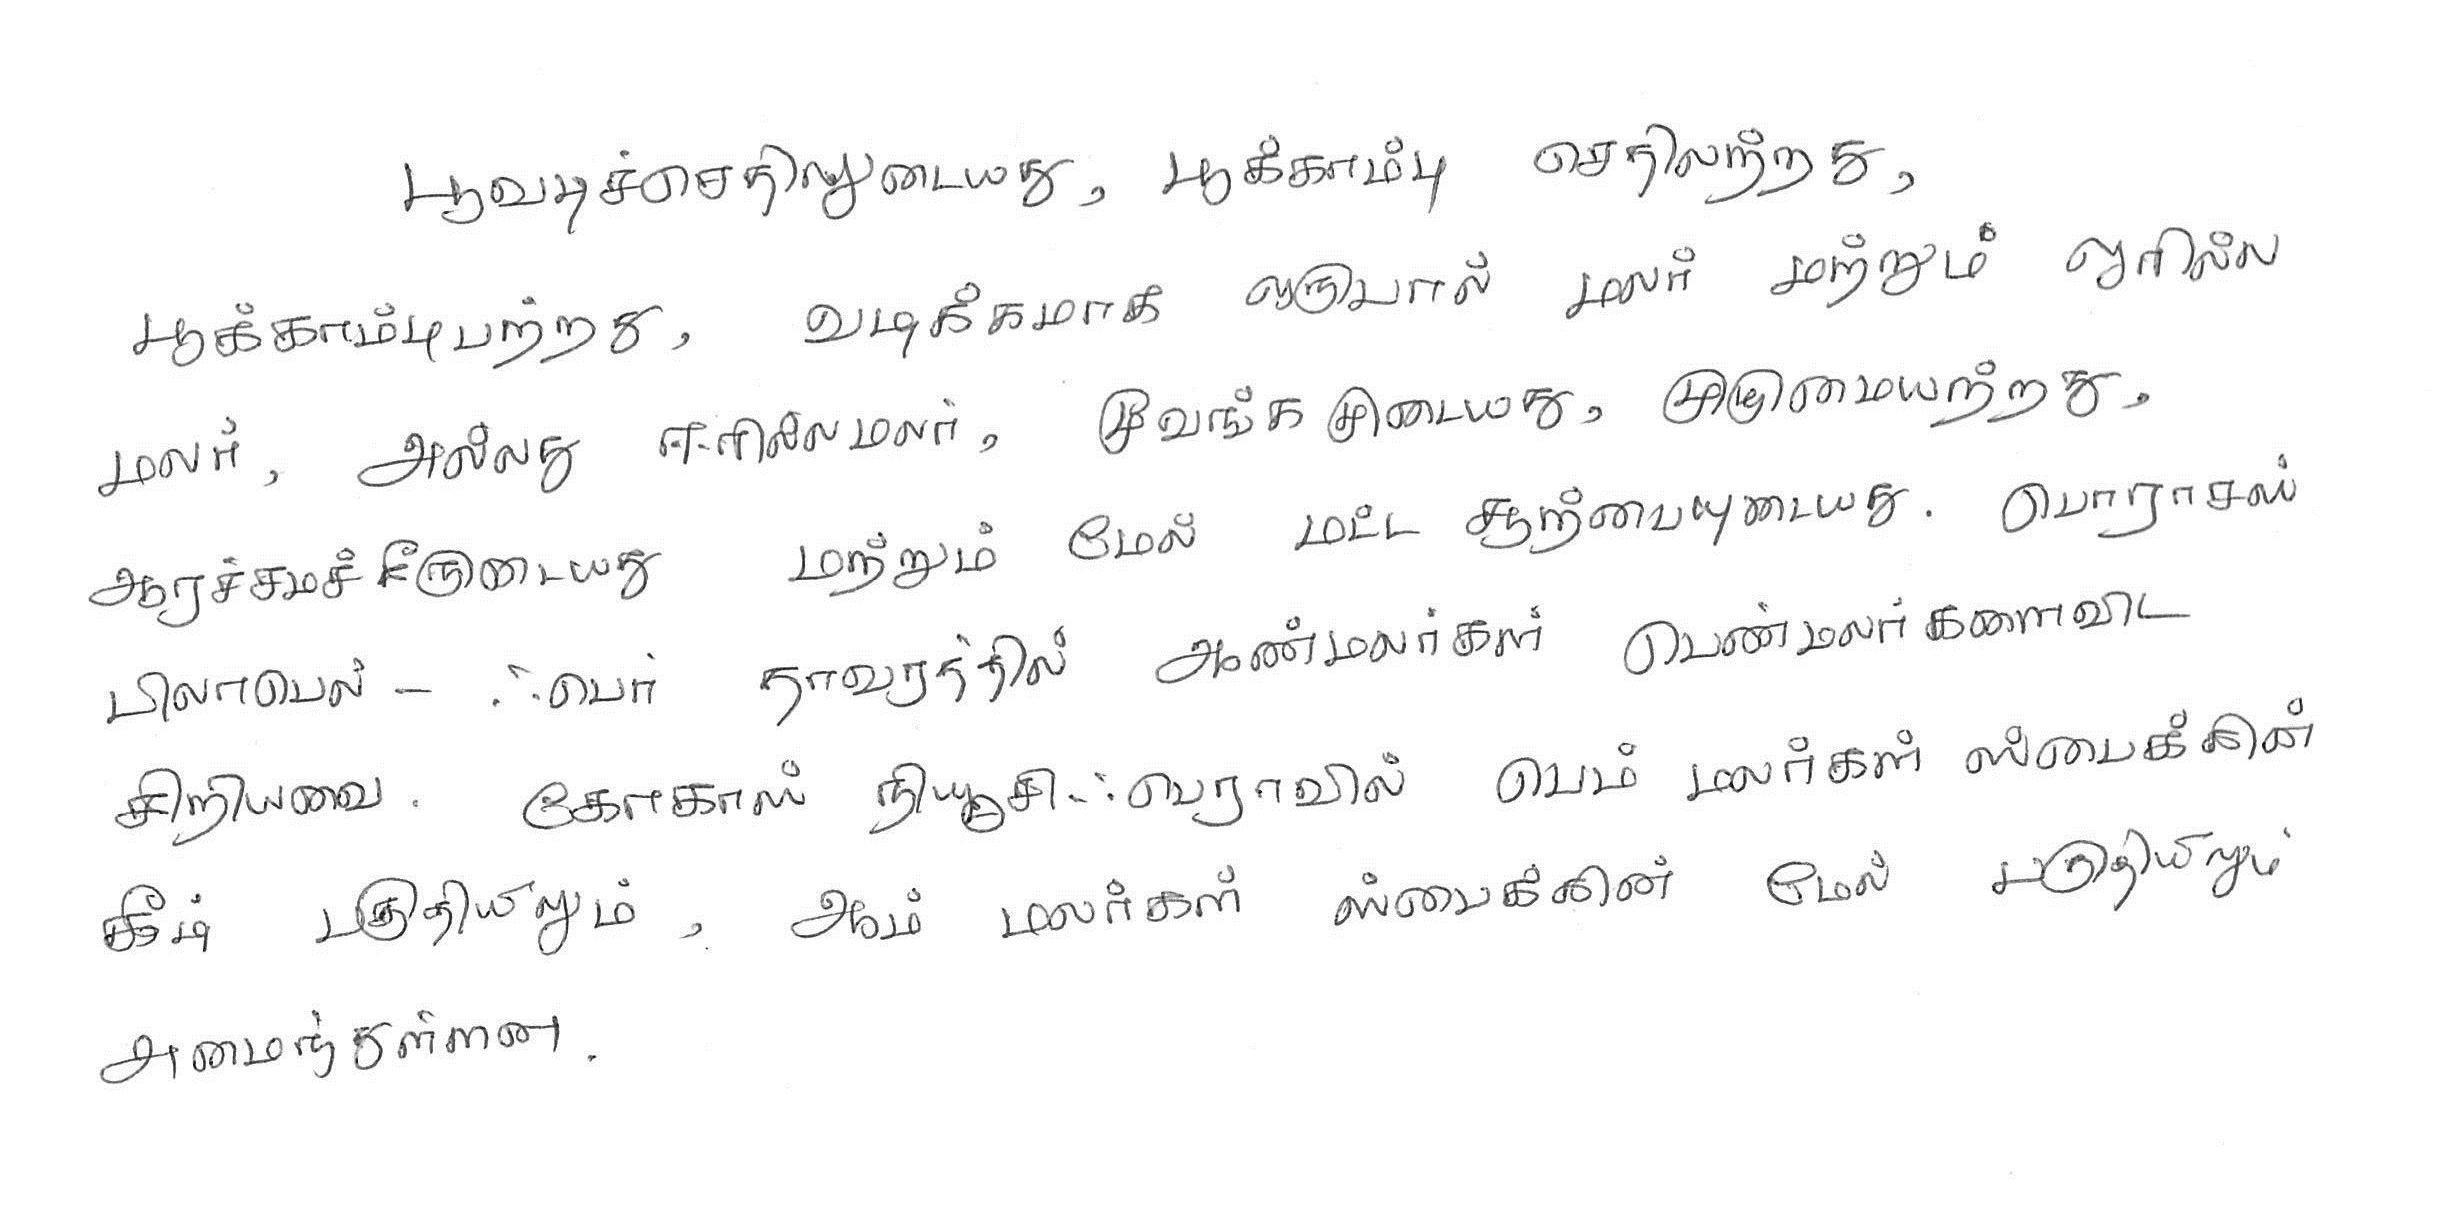 பூவடிச்செதிலுடையது, பூக்காம்பு செதிலற்றது,
பூக்காம்புபற்றது, வடிக்கமாக ஒருபால் மலர் மற்றும் ஓரில்ல
மலர், அல்லது ஈரில்லமலர், மூவங்க முடையது, முழுமையற்றது,
ஆரச்சமச்சீருடையது மற்றும் மேல் மட்ட சூற்பையுடையது. பொராசஸ்
பிலாபெல் - ஃபெர் தாவரத்தில் ஆண்மலர்கள் பெண்மலர்களைவிட
சிறியவை. கோகாஸ் நியூசிஃபெராவில் பெம் மலர்கள் ஸ்பைக்கின்
கீழ் பகுதியிலும், ஆம் மலர்கள் ஸ்பைக்கின் மேல் பகுதியிலும்
அமைந்துள்ளன.